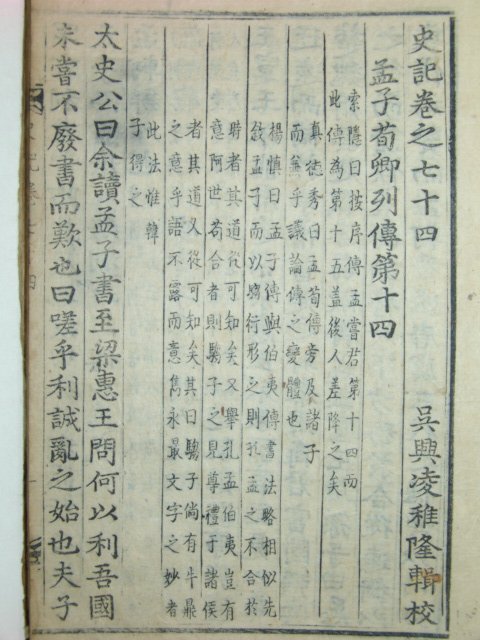 史記卷之七十四 吳興凌稚隆輯校
孟子荀卿列傳第十四
索隱曰按序傳孟嘗君第十四而
此傳為第十五蓋後人差降之矣
真德秀曰孟荀傳旁及諸子
而兼乎議論傳之變體也
楊慎曰孟子傳與伯夷傳書法略相似先
敘孟子而以騶衍形之則孔孟之不合於
時者其道從可知矣又舉孔孟伯夷豈有
意阿世苟合者則騶子之見尊禮于諸侯
者其道又從可知矣其曰騶子倘有牛鼎
之意乎語不露而意雋永最文字之妙者
此法惟韓
子得之
太史公曰余讀孟子書至梁惠王問何以利吾國
未嘗不廢書而歎也曰嗟乎利誠亂之始也夫子